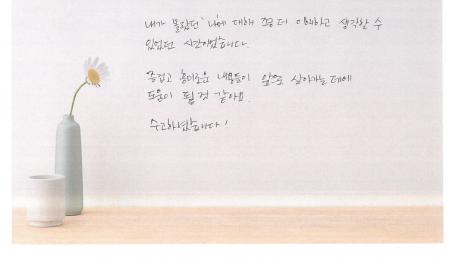 내가 몰랐던 '나'에 대해 좀 더 이해하고 생각할 수
있었던 시간이었습니다.
즐겁고 흥미로운 내용들이 앞으로 살아가는 데에
도움이 될 것 같아요.
수고하셨습니다!